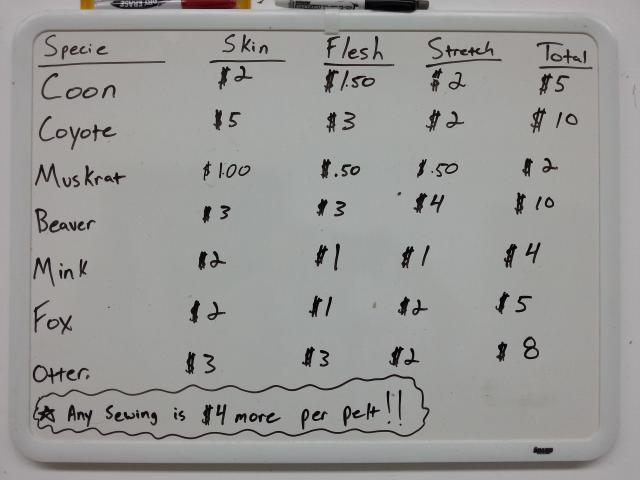 DRY ERASE
Specie Skin Flesh Stretch Total
Coon $2 $1.50 $2 $5
Coyote $5 $3 $2 $10
Muskrat $1.00 $.50 $.50 $2
Beaver $3 $3 $4 $10
Mink $2 $1 $1 $4
Fox $2 $1 $2 $5
Otter. $3 $3 $2 $8
☆ Any Sewing is $4 more per pelt!!